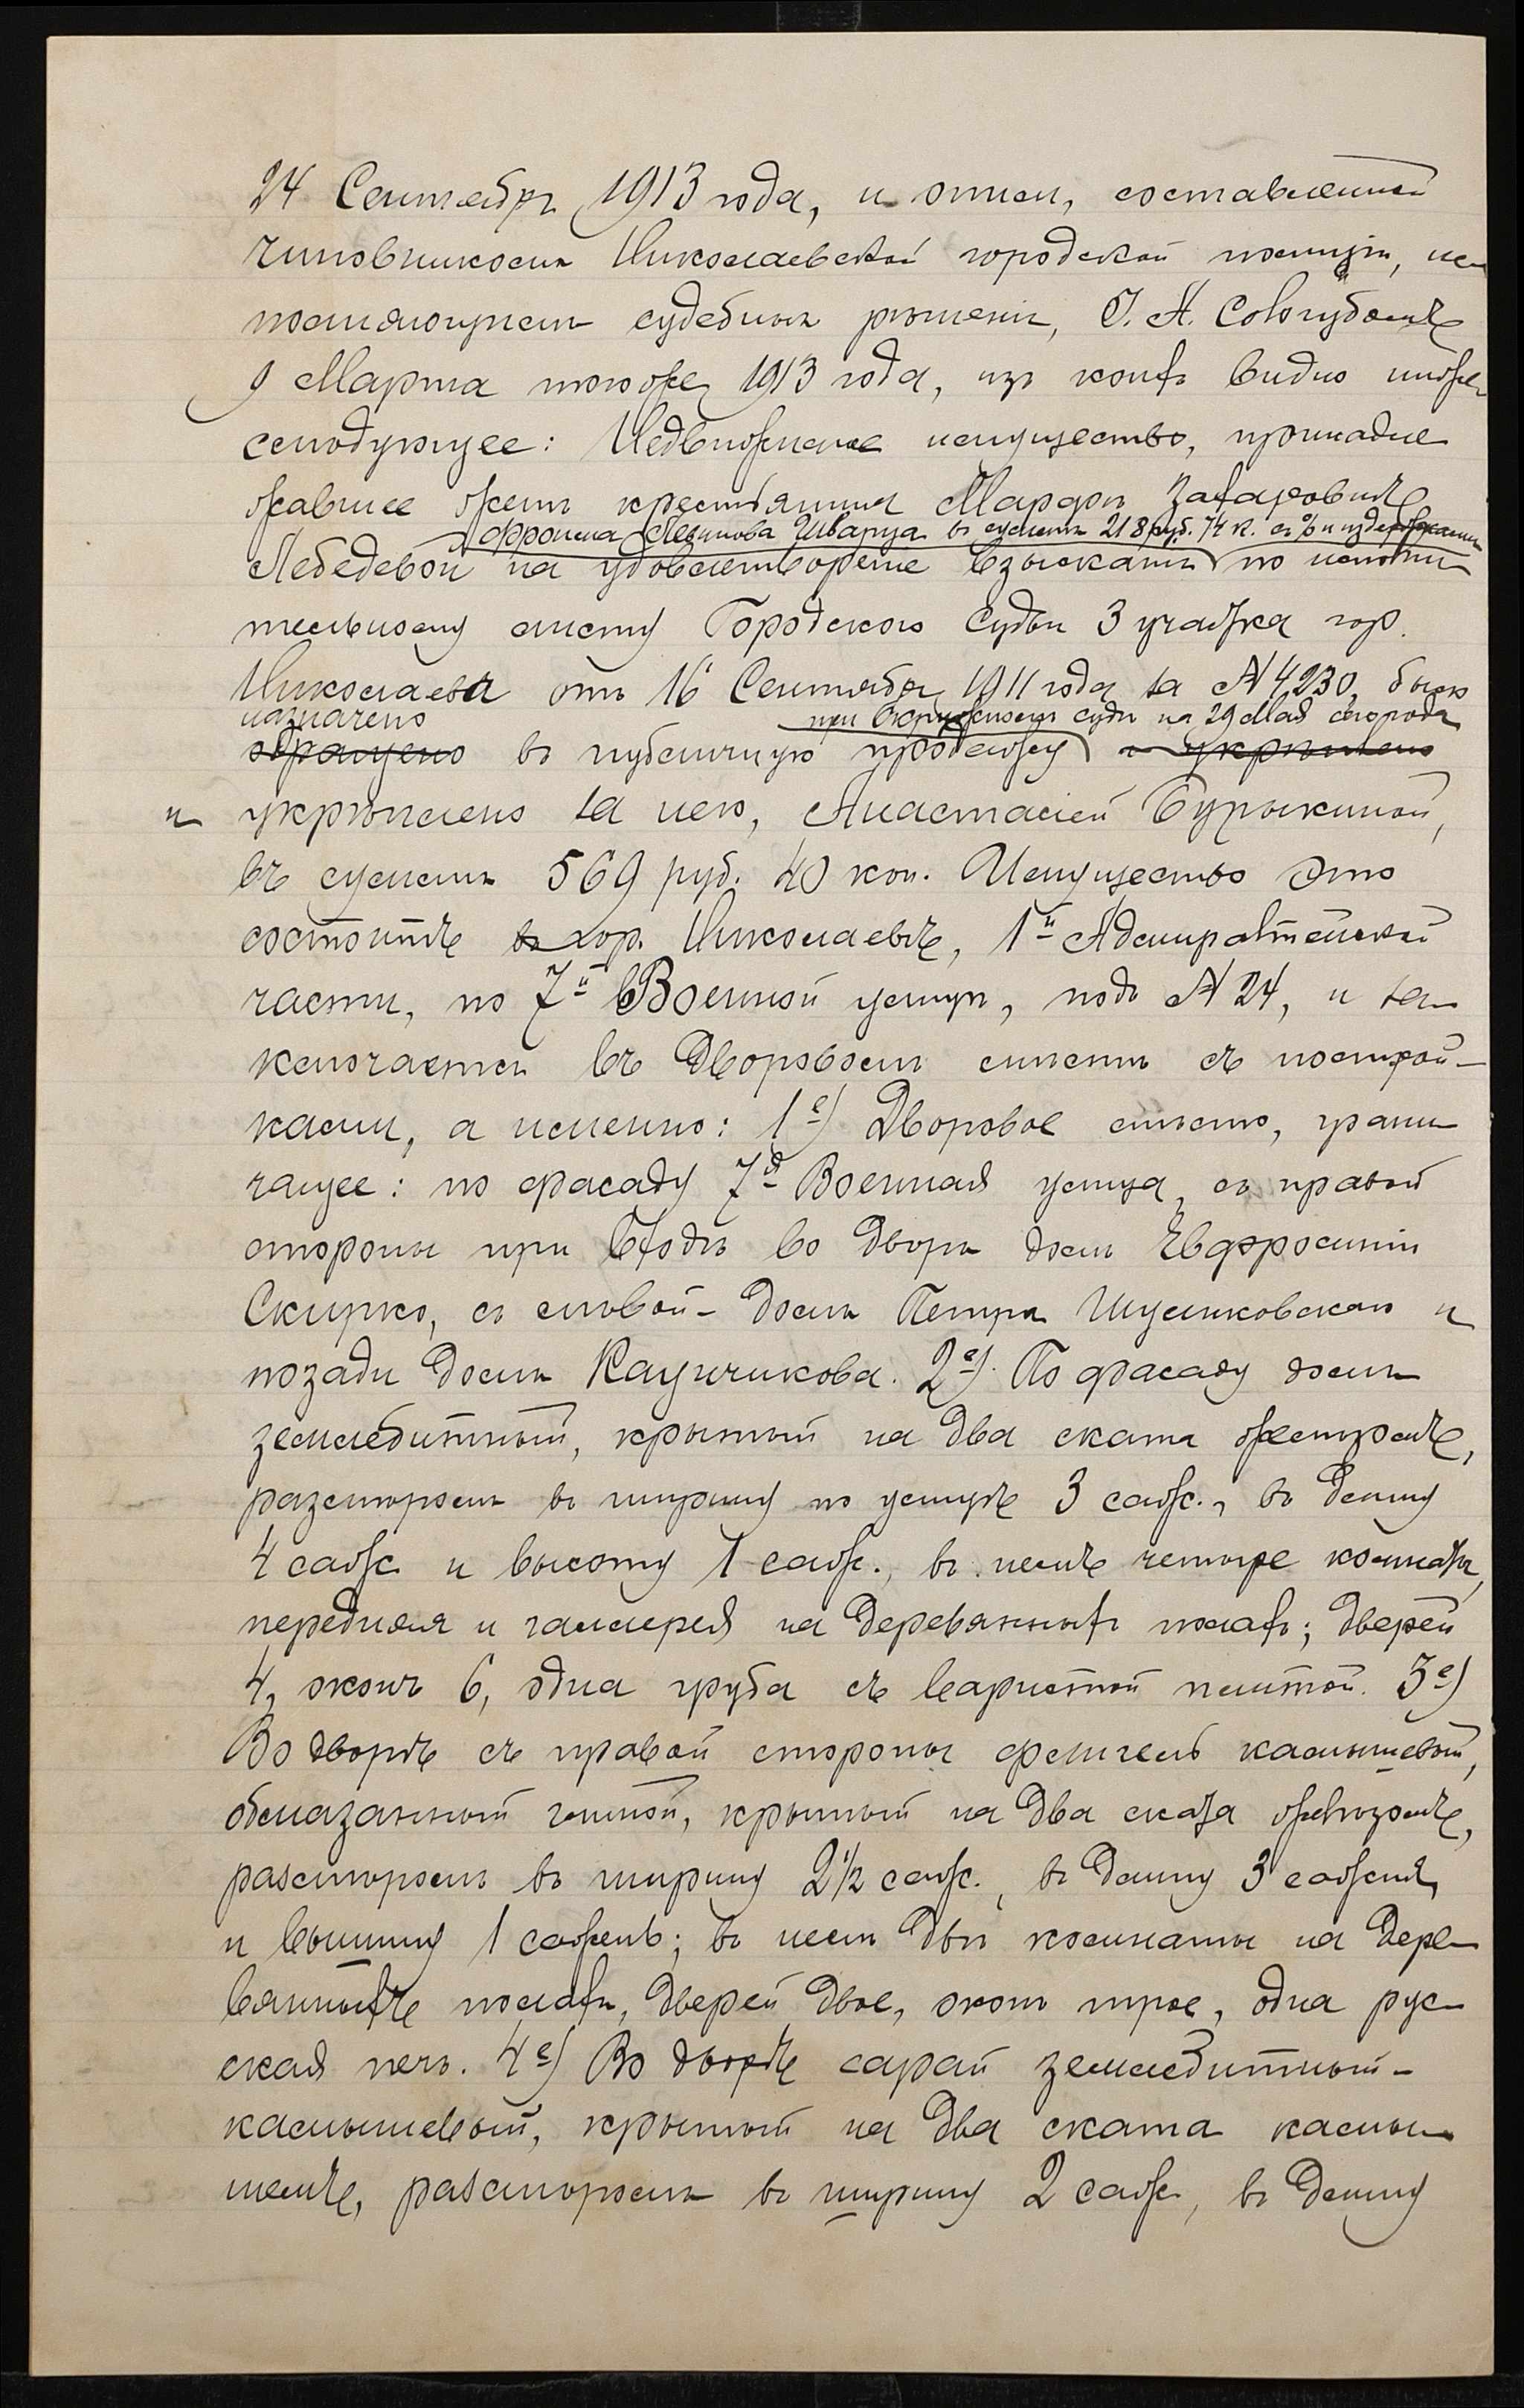 24 Сентября 1913 года, и описи, составленной
чиновникомъ Николаевской городской полиціи, ис-
полняющимъ судебныя рѣшенія, І. А. Сологубомъ
9 Марта того же 1913 года, изъ коихъ видно ниже-
слѣдующее: Недвижимое имущество, принадле
жавшее женѣ крестьянина Марфѣ Захаровнѣ
Фроима Левинова Шварца въ суммѣ 218 руб. 74 к. съ % и издержками
Лебедевой на удовлетвореніе взысканія по исполни
тельному листу Городского Судьи 3 участка гор.
Николаева отъ 16 Сентября 1911 года за № 4230, было
назначено при Окружномъ судѣ на 29 Мая сего года
обращено въ публичную продажу и укрѣплено
и укрѣплено за нею, Анастасіей Бурыкиной,
въ суммѣ 569 руб. 40 коп. Имущество это
состоитъ въ гор. Николаевѣ, 1й Адмиралтейской
части, по 7й Военной улицѣ, подъ № 24, и за-
ключается въ дворовомъ мѣстѣ съ построй-
ками, а именно: 1е) Дворовое мѣсто, грани
чащее: по фасаду 7я Военная улица, съ правой
стороны при входѣ во дворъ домъ Евфросиніи
Скирко, съ лѣвой - домъ Петра Шумиковскаго и
позади домъ Каунчикова. 2е) По фасаду домъ
землебитный, крытый на два ската желѣзомъ,
размѣромъ въ ширину по улицѣ 3 саж., въ длину
4 саж. и высоту 1 саж., въ немъ четыре комнаты,
передняя и галлерея на деревянныхъ полахъ; дверей
4, оконъ 6, одна груба съ варистой плитой. 3е)
Во дворѣ съ правой стороны флигель камышевый,
обмазанный глиной, крытый на два ската желѣзомъ,
размѣромъ въ ширину 2½ саж., въ длину 3 сажня,
и вышину 1 сажень; въ немъ двѣ комнаты на дере-
вянныхъ полахъ, дверей двое, оконъ трое, одна рус-
ская печь. 4е) Во дворѣ сарай землебитный-
камышевый, крытый на два ската камы-
шемъ, размѣромъ въ ширину 2 саж., въ длину